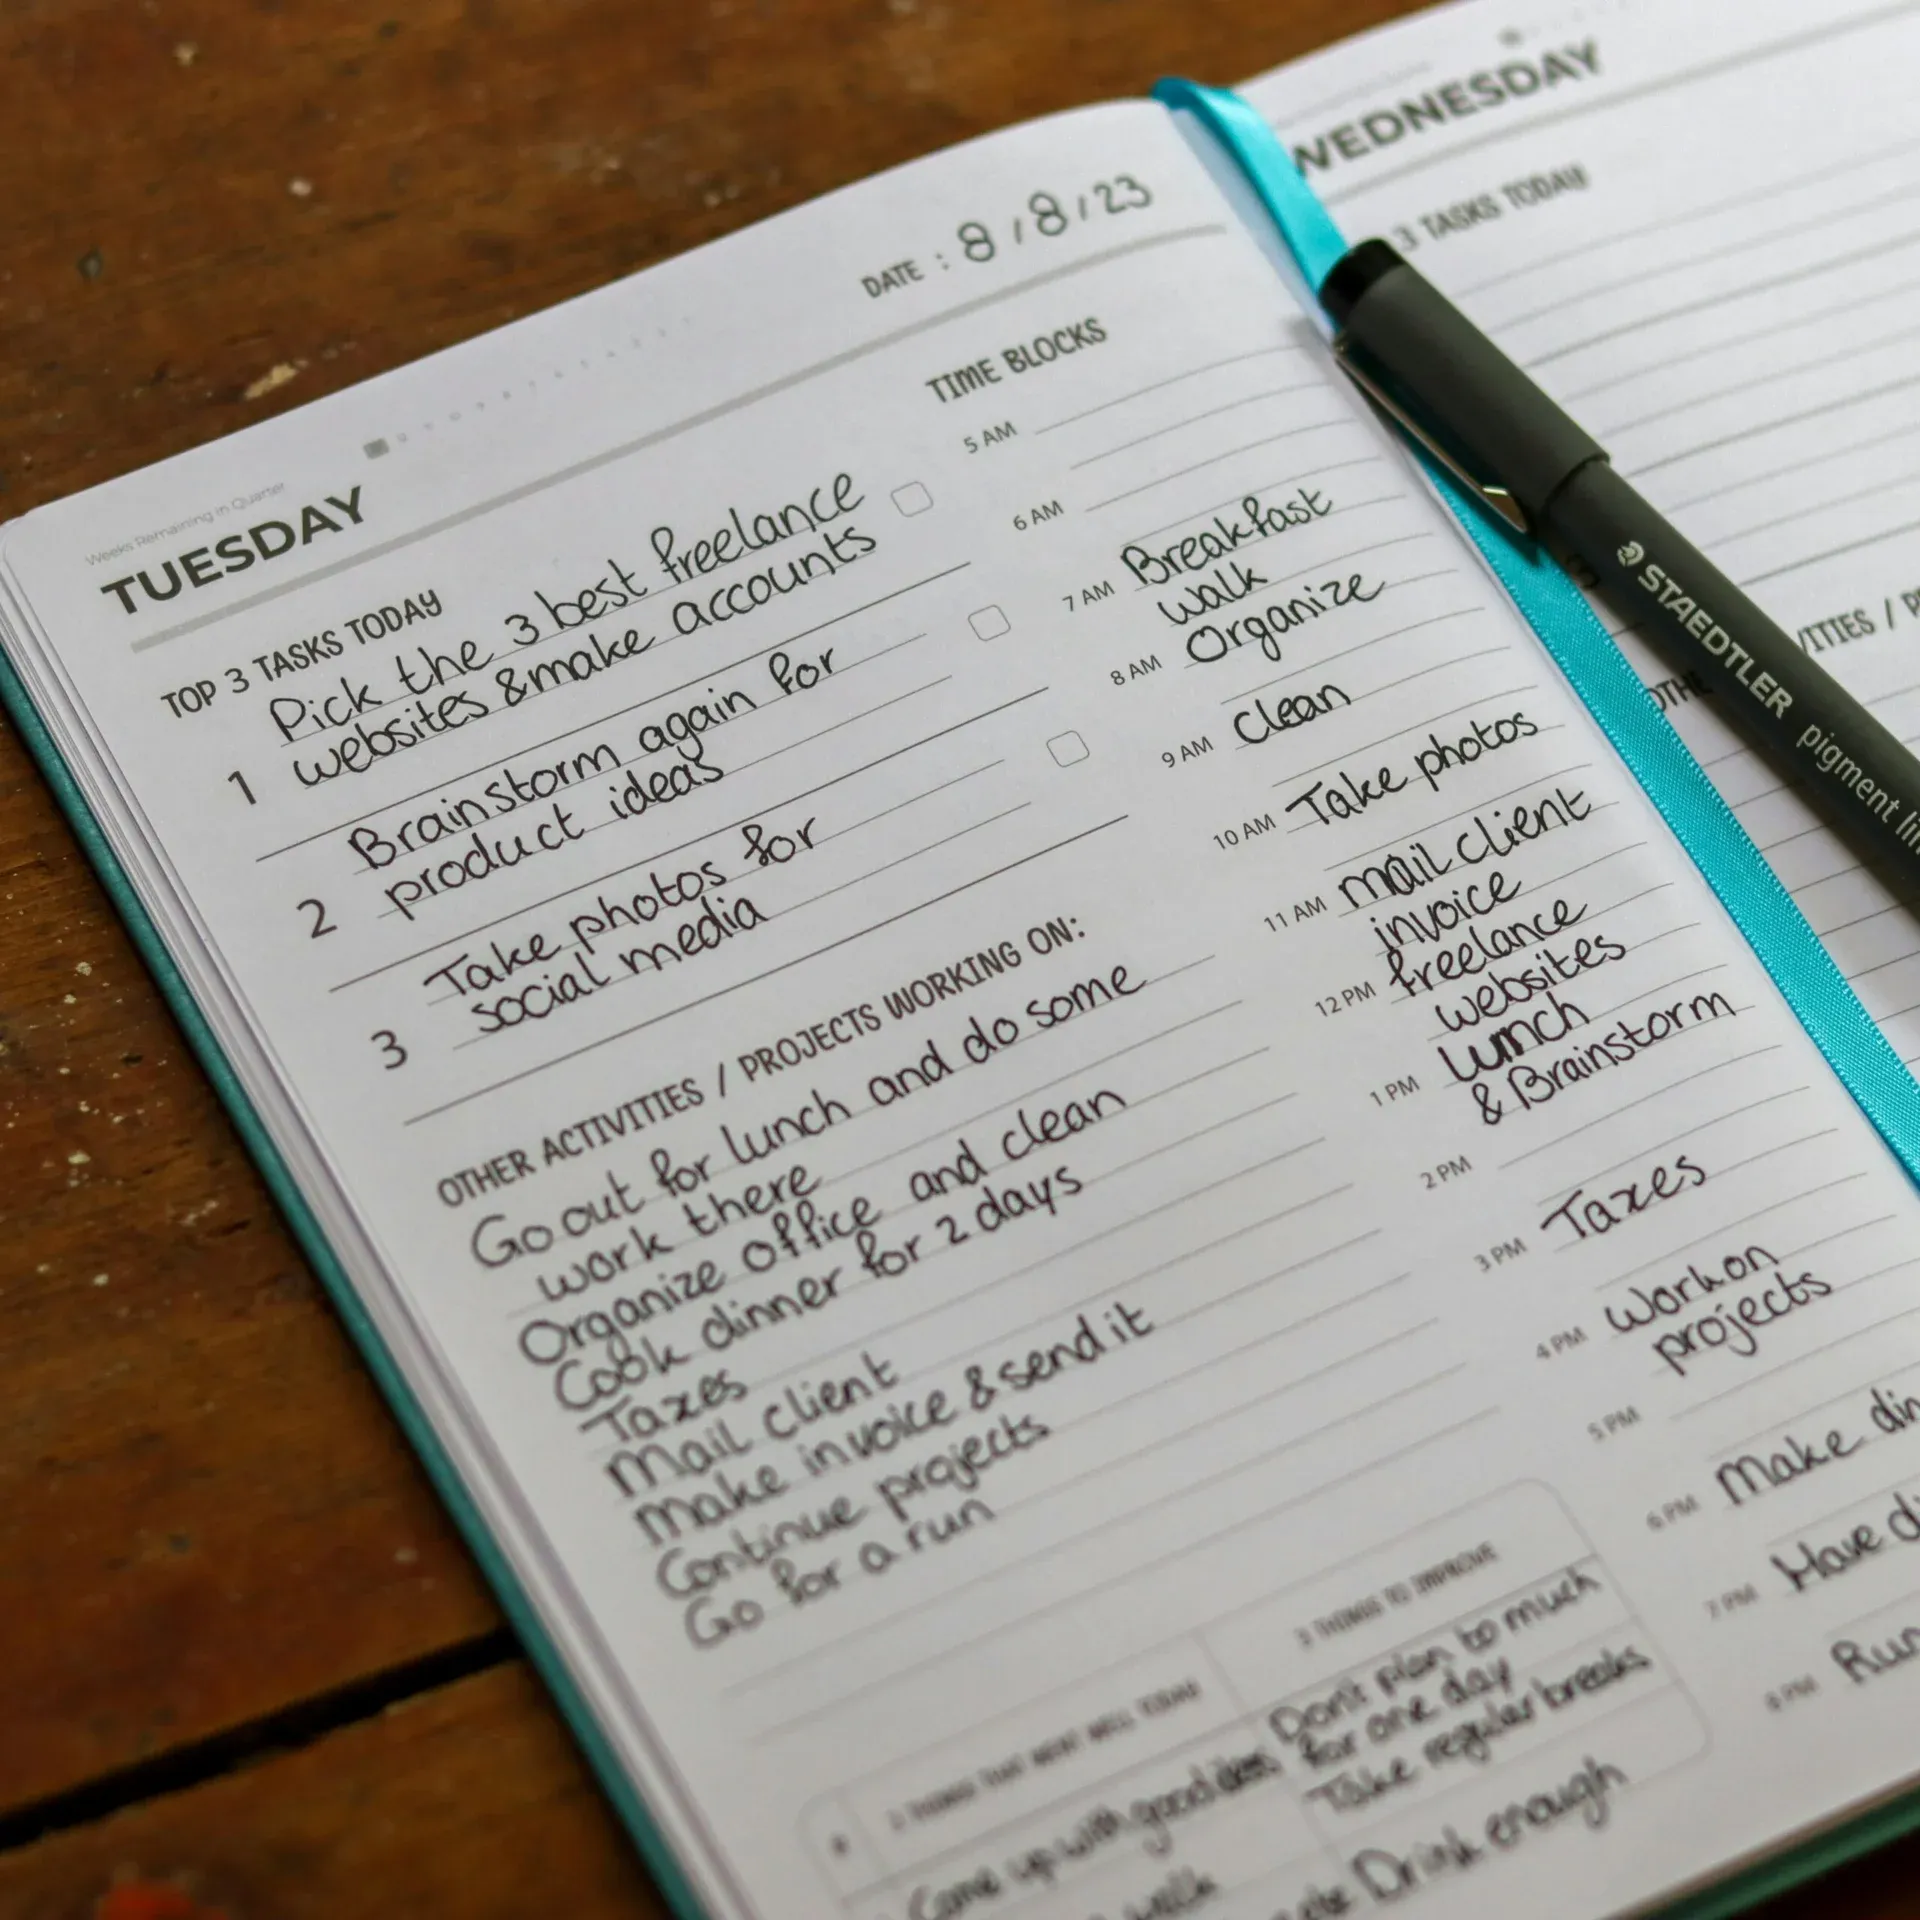 Weeks Remaining in Quarter
TUESDAY
DATE : 8/8/23
TOP 3 TASKS TODAY
1 Pick the 3 best freelance
websites & make accounts
2 Brainstorm again for
product ideas
3 Take photos for
social media
OTHER ACTIVITIES / PROJECTS WORKING ON:
Go out for lunch and do some
work there
Organize office and clean
Cook dinner for 2 days
Taxes
Mail client
Make invoice & send it
Continue projects
Go for a run
TIME BLOCKS
5 AM
6 AM
7 AM Breakfast
walk
8 AM Organize
9 AM Clean
10 AM Take photos
11 AM mail client
invoice
12 PM freelance
websites
lunch
1 PM & Brainstorm
2 PM
3 PM Taxes
4 PM Work on
projects
5 PM
6 PM Make din
7 PM Have di
8 PM Run
3 THINGS THAT WENT WELL TODAY
Come up with good ideas
walk
3 THINGS TO IMPROVE
Don't plan to much
for one day
Take regular breaks
Drink enough
WEDNESDAY
3 TASKS TODAY
OTHE
VITIES / P
STAEDTLER pigment lin